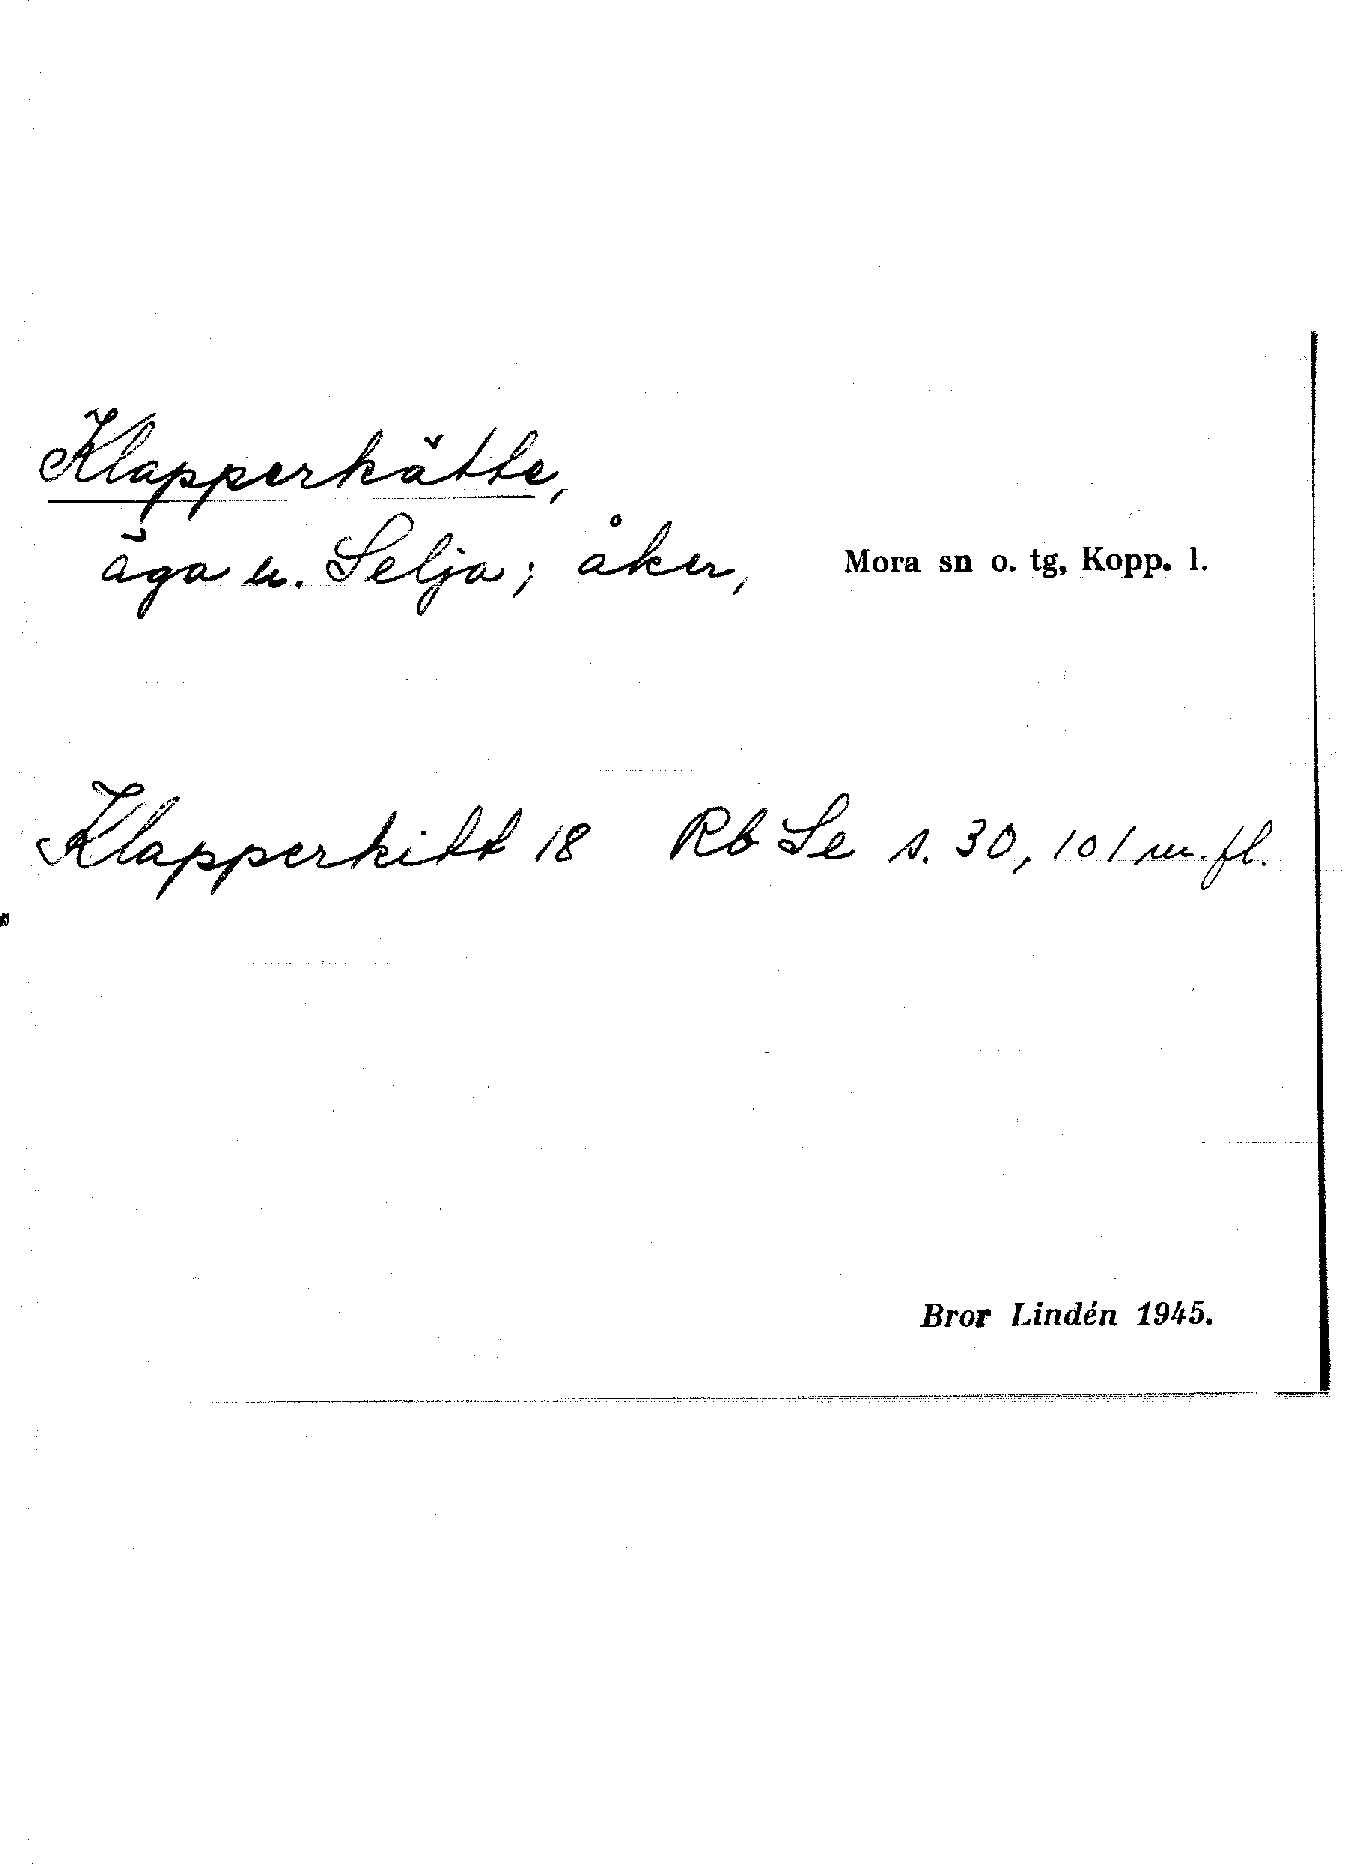 Klapperkätte,
äga u. Selja; åker, Mora sn o. tg, Kopp. l.
Klapperkitt 18 Rb Se s. 30, 101 m. fl.
Bror Lindén 1945.